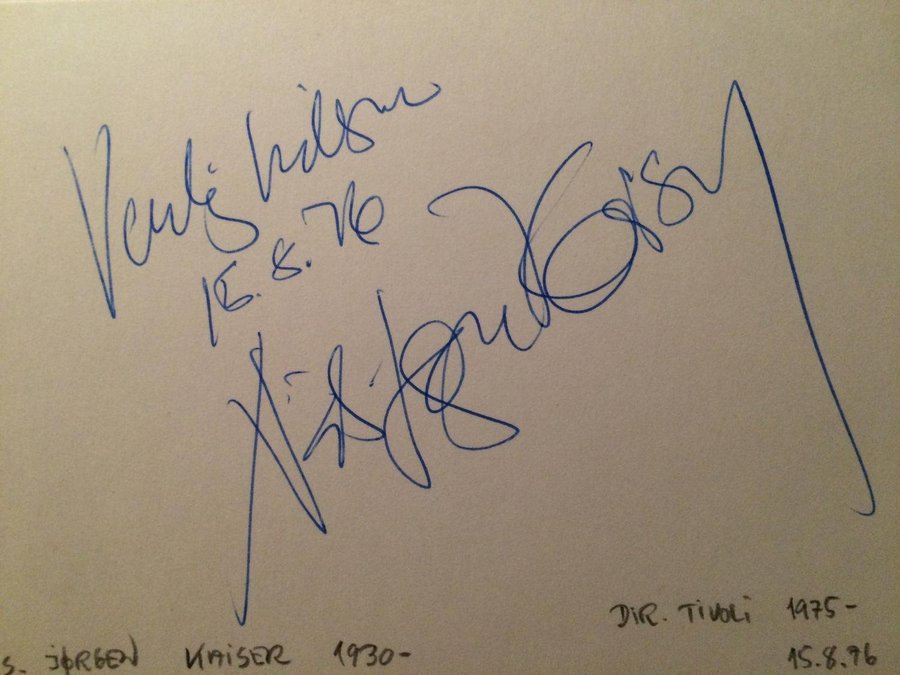 Venlig hilsen
15.8.76
Niels Jørgen Kaiser
DIR. TIVOLI 1975-
S. JØRGEN KAISER 1930- 15.8.76